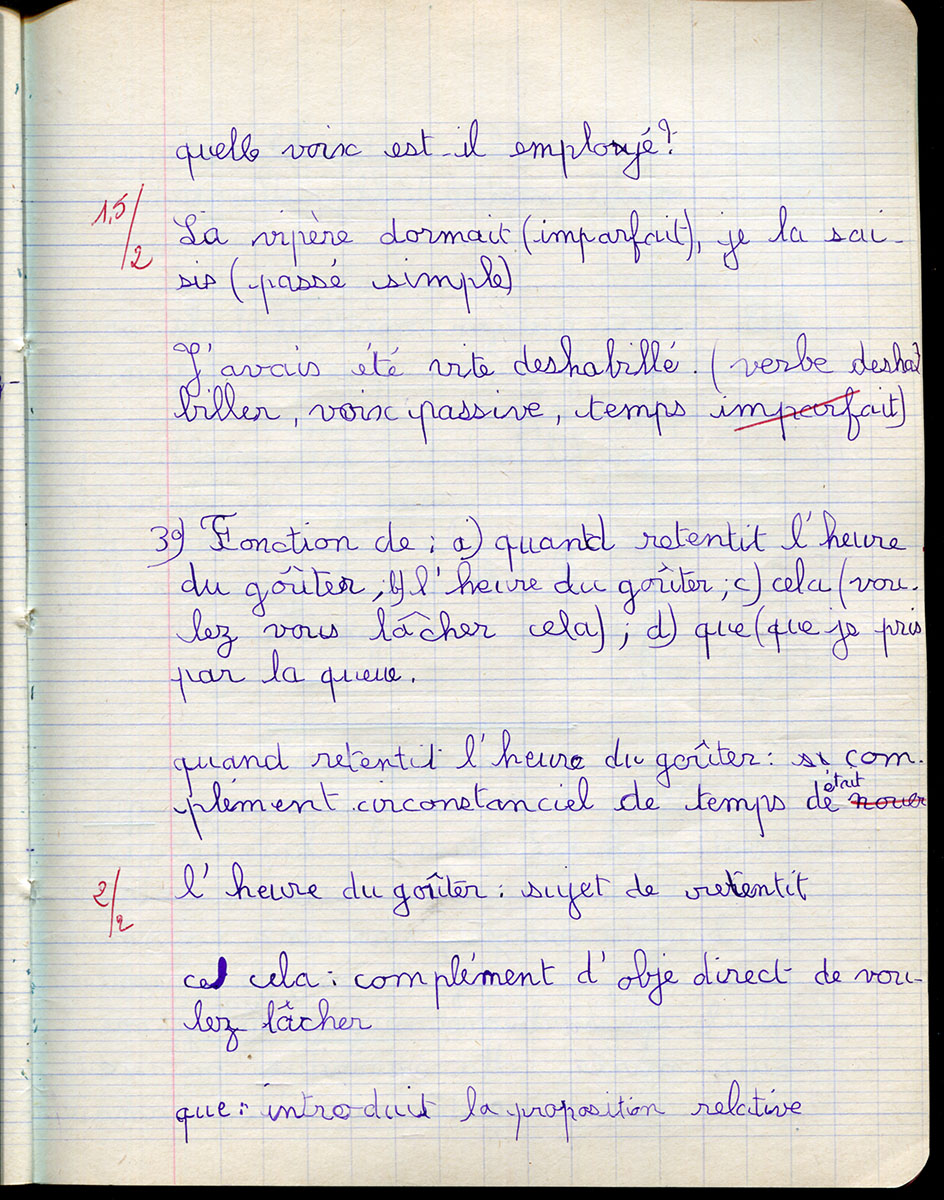 quelle voix est-il employé?
1,5/2
La vipère dormait (imparfait), je la sai-
sis (passé simple)
J'avais été vite deshabillé. (verbe desha
biller, voix passive, temps imparfait)
3°) Fonction de : a) quand retentit l'heure
du goûter ; b) l'heure du goûter ; c) cela (vou-
lez vous lâcher cela) ; d) que (que je pris
par la queue.
quand retentit l'heure du goûter : com-
plément circonstanciel de temps de était
2/2
l'heure du goûter : sujet de retentit
cela : complément d'obje direct de vou-
lez lâcher
que : introduit la proposition relative